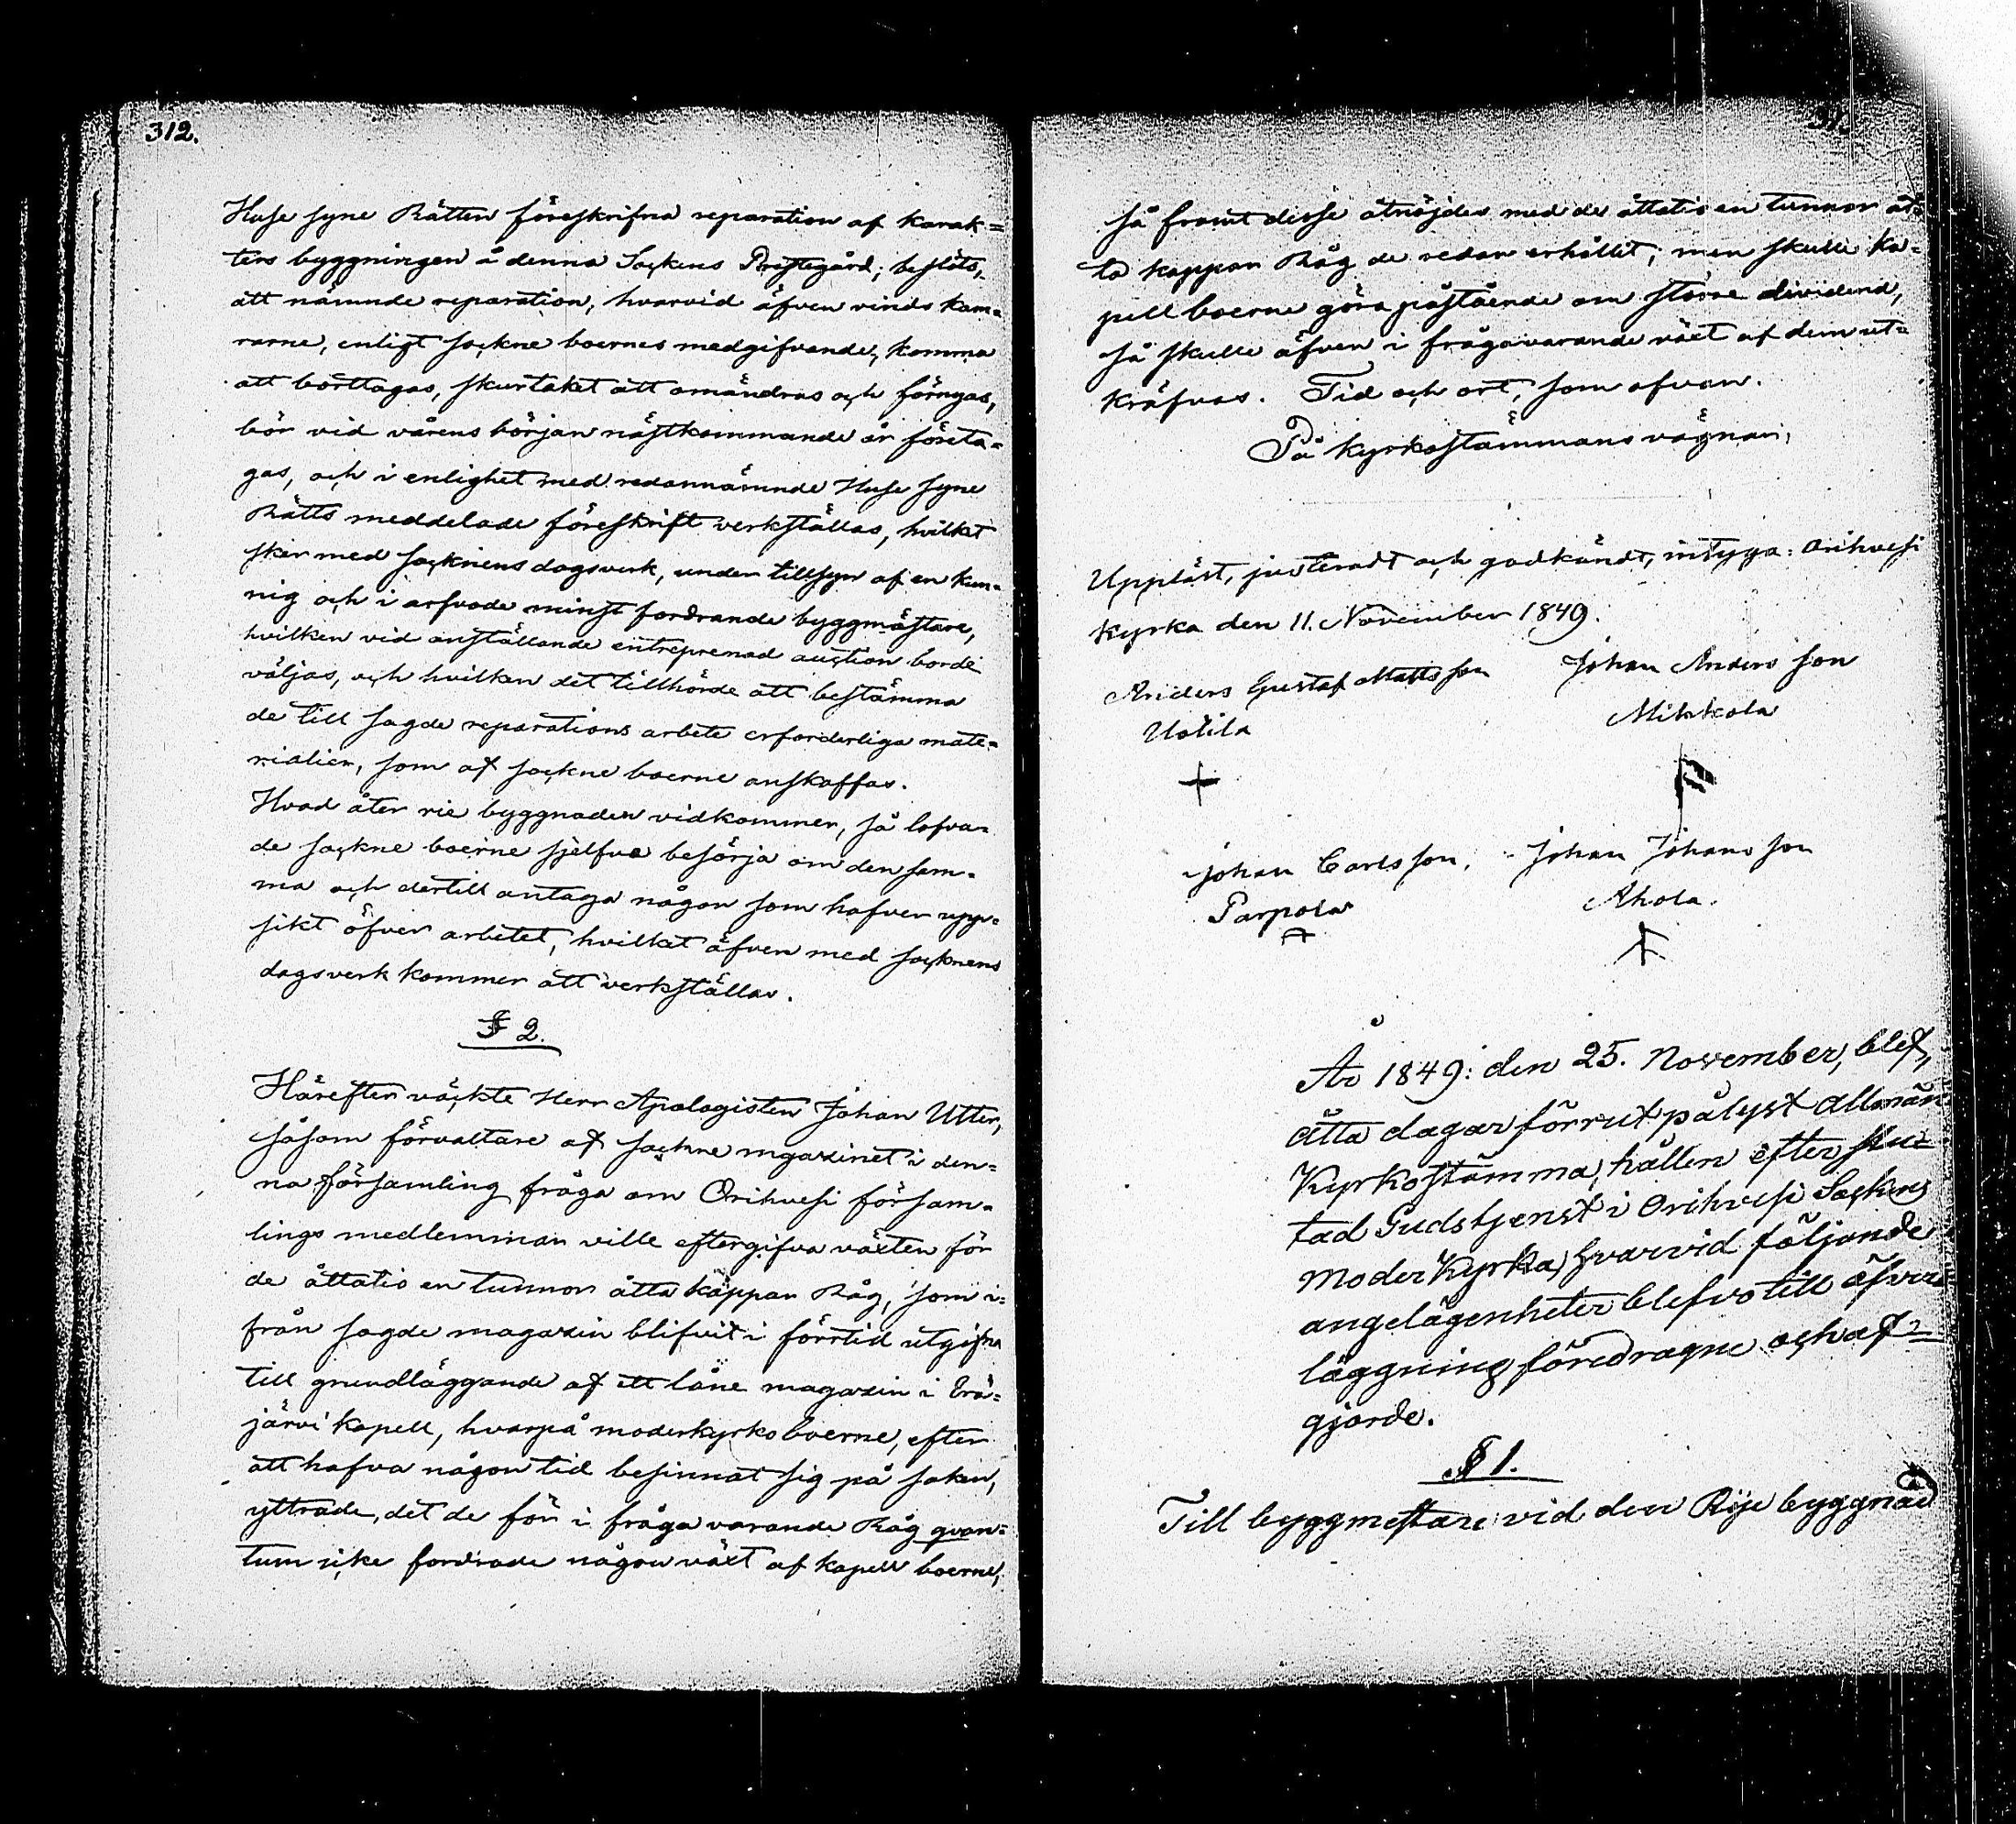 312.
Huse syne Rätten föreskrifna reparation af karak=
ters byggningen å denna Sockens Prestegård; beslöts,
att nämnde reparation, hvarvid äfven vinds kam=
rarne, enligt sockne boernes medgifvande, komma
att borttagas, skurtaket att omändras och förngas,
bör vid vårens början nästkommande år företa=
gas, och i enlighet med redannämnde Huse syne
Rätts meddelade föreskrift verkställas, hvilket
sker med socknens dagsverk, under tillsyn af en kun=
nig och i arfvode minst fordrande byggmästare,
hvilken vid anställande entreprenad auction borde
väljas, och hvilken det tillhörde att bestämma
de till sagde reparations arbete erforderliga mate=
rialier, som af sockne boerne anskaffas.
Hvad åter rie byggnaden vidkommer, så lofva=
de sockne boerne sjelfva besörja om den sam=
ma och dertill antaga någon som hafver upp=
sikt öfver arbetet, hvilket äfven med socknens
dagsverk kommer att verkställas.
§ 2.
Härefter väckte Herr Apologisten Johan Utter,
såsom förvaltare af sockne mgasinet i den=
na församling fråga om Orihvesi försam=
lings medlemmar ville eftergifva växten för
de åttatio en tunnor åtta kappar Råg, som i=
från sagde magasin blifvit i förrtid utgifna
till grundläggande af ett låne magasin i Erä=
järvi kapell, hvarpå moderkyrko boerne, efter
att hafva någon tid besinnat sig på saken,
yttrade, det de för i fråga varande Råg qvan=
tum icke fordrade någon växt af kapell boerne,
så framt desse åtnöjdes med de åttatio en tunnor åt=
ta kappar Råg de redan erhållit; men skulle ka=
pell boerne göra påstående om större dividend,
så skulle äfven i frågavarande växt af dem ut=
kräfvas. Tid och ort, som ofvan.
På Kyrkostämmans vägnar,
Uppläst, justeradt och godkändt, intyga: Orihvesi
Kyrka den 11. November 1849.
Anders Gustaf Mattsson Johan Andersson
Uotila Mikkola
Johan Carlsson, Johan Johansson
Parpola Ahola.
År 1849: den 25. November, blef,
åtta dagar förrut pålyst allmän
Kyrkostämma, hållen efter slu=
tad Gudstjenst i Orihvesi Sockens
Moder Kyrka, hvarvid följande
angelägenheter blefvo till öfver=
läggning föredragne och af=
gjorde.
§ 1.
Till byggmestare vid den Rije byggnad